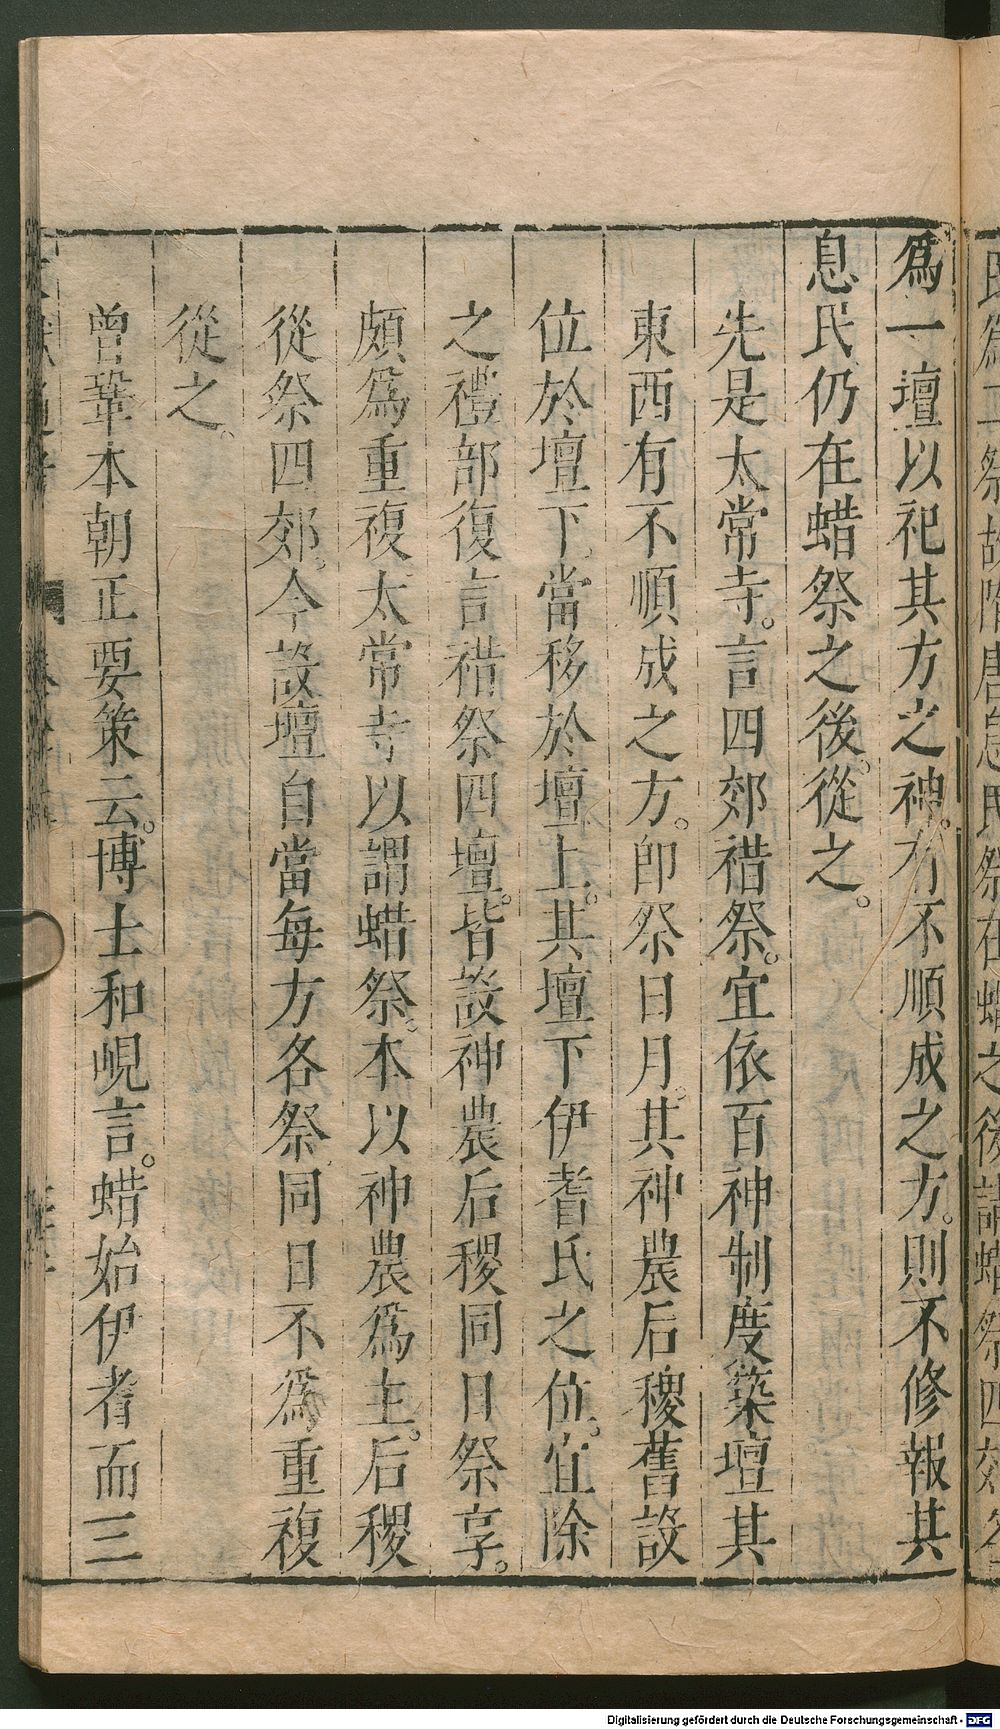 爲一壇以祀其方之神。有不順成之方。則不修報其
息民仍在蜡祭之後。從之。
先是太常寺。言四郊禇祭。宜依百神制度築壇其
東西有不順成之方。卽祭日月。其神農后稷舊設
位於壇下。當移於壇上。其壇下伊耆氏之位。宜除
之禮部復言禇祭四壇。皆設神農后稷同日祭享。
頗爲重複太常寺以謂蜡祭。本以神農爲主。后稷
從祭四郊。今設壇自當每方各祭同日不爲重複
從之。
曾鞏本朝正要策云。博士和峴言。蜡始伊耆而三
Digitalisierung gefördert durch die Deutsche Forschungsgemeinschaft - DFG